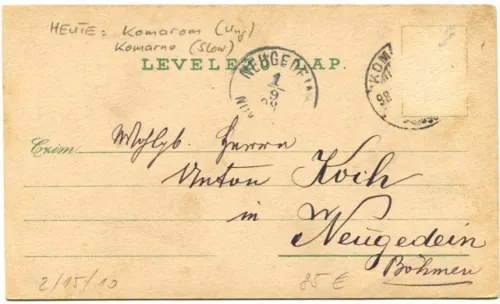 HEUTE: Komarom (Ung)
Komarno (Slow)
LEVELEZ LAP.
NEUGEDEIN
1
9
KOMÁ
98
Czim:
Wohlgb. Herrn
Anton Koch
in Neugedein
Böhmen
2/15/10
85 €